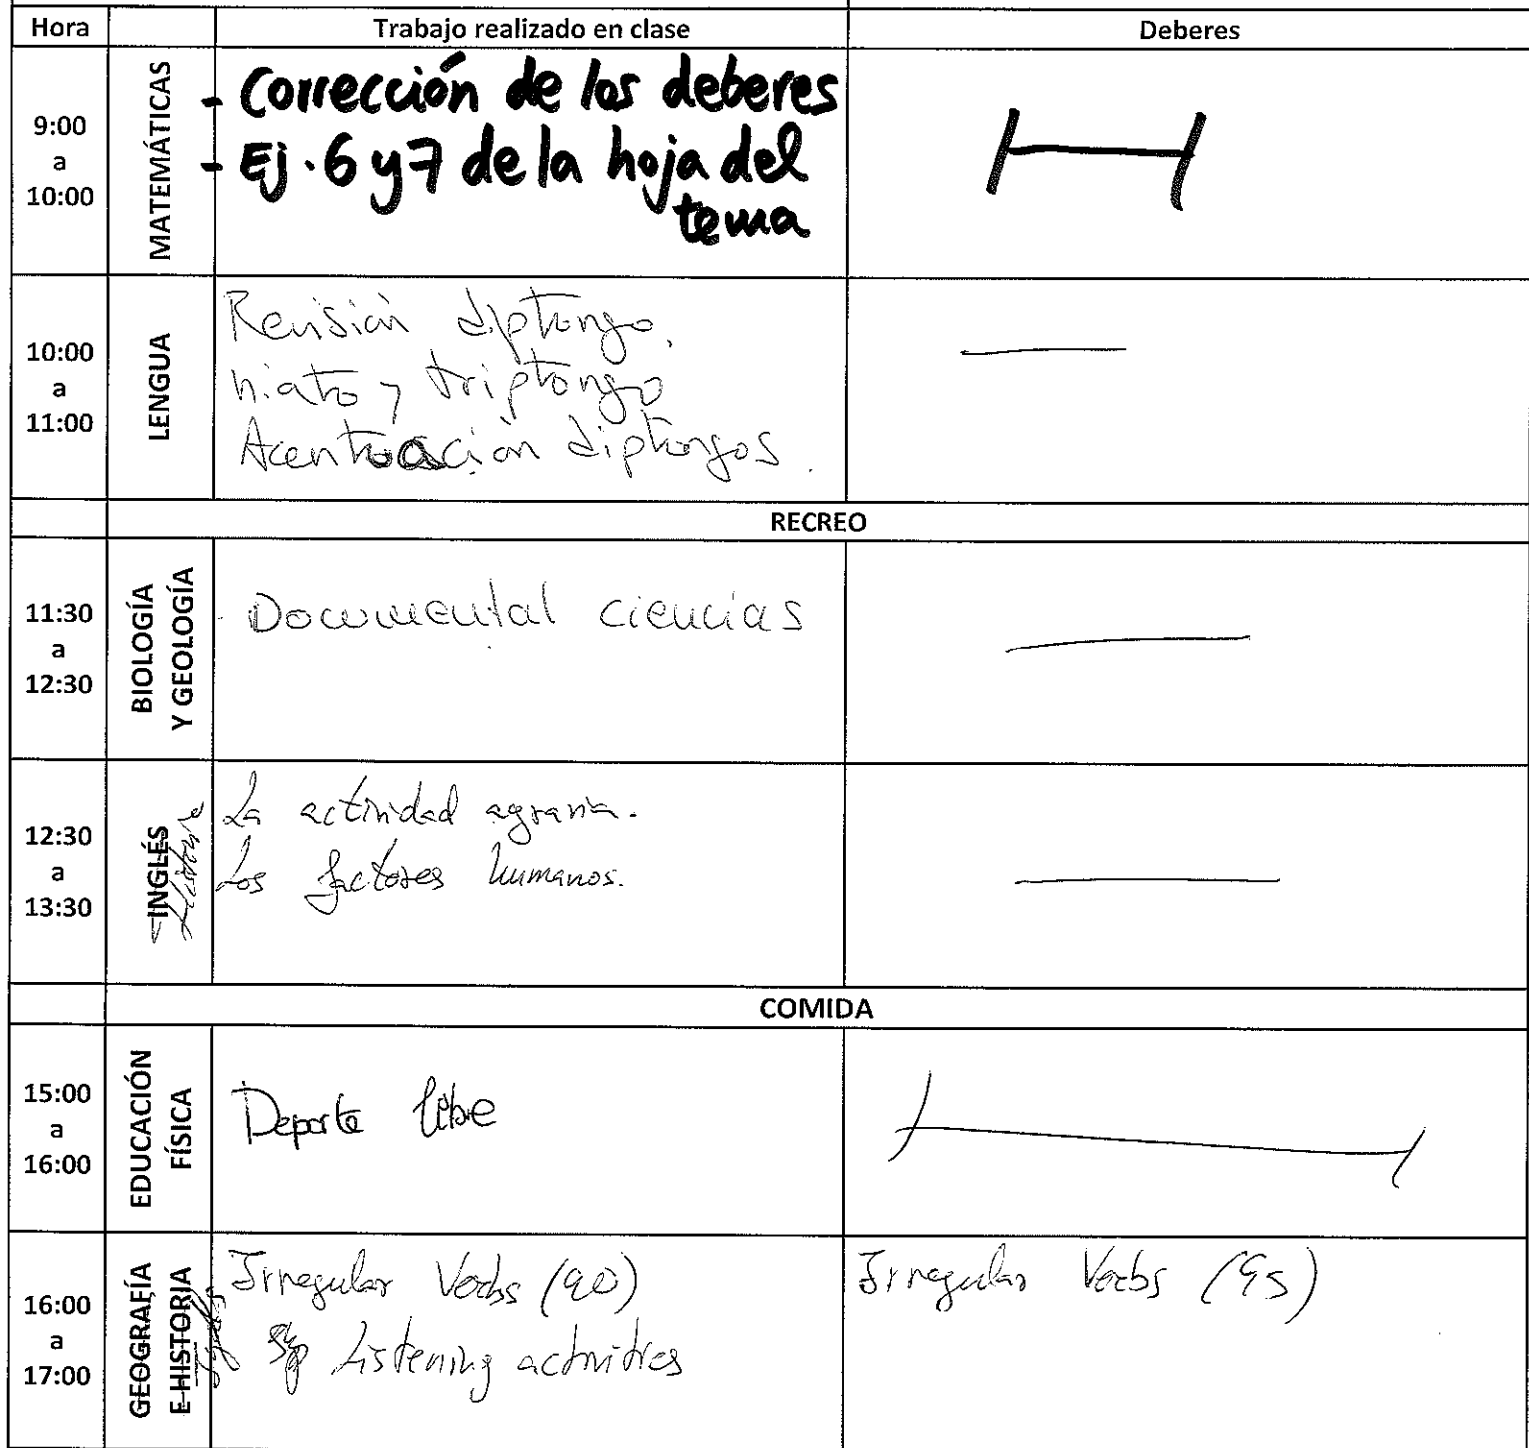 Hora Trabajo realizado en clase Deberes
9:00
a
10:00
MATEMÁTICAS
- Corrección de los deberes
- Ej. 6 y 7 de la hoja del
tema
10:00
a
11:00
LENGUA
Revisión diptongo,
hiato y triptongo
Acentuación diptongos.
RECREO
11:30
a
12:30
BIOLOGÍA
Y GEOLOGÍA
Documental ciencias
12:30
a
13:30
INGLÉS
La actividad agraria.
Los factores humanos.
COMIDA
15:00
a
16:00
EDUCACIÓN
FÍSICA
Deporte libre
16:00
a
17:00
GEOGRAFÍA
E HISTORIA
Irregular Verbs (90)
Listening activities
Irregular Verbs (95)